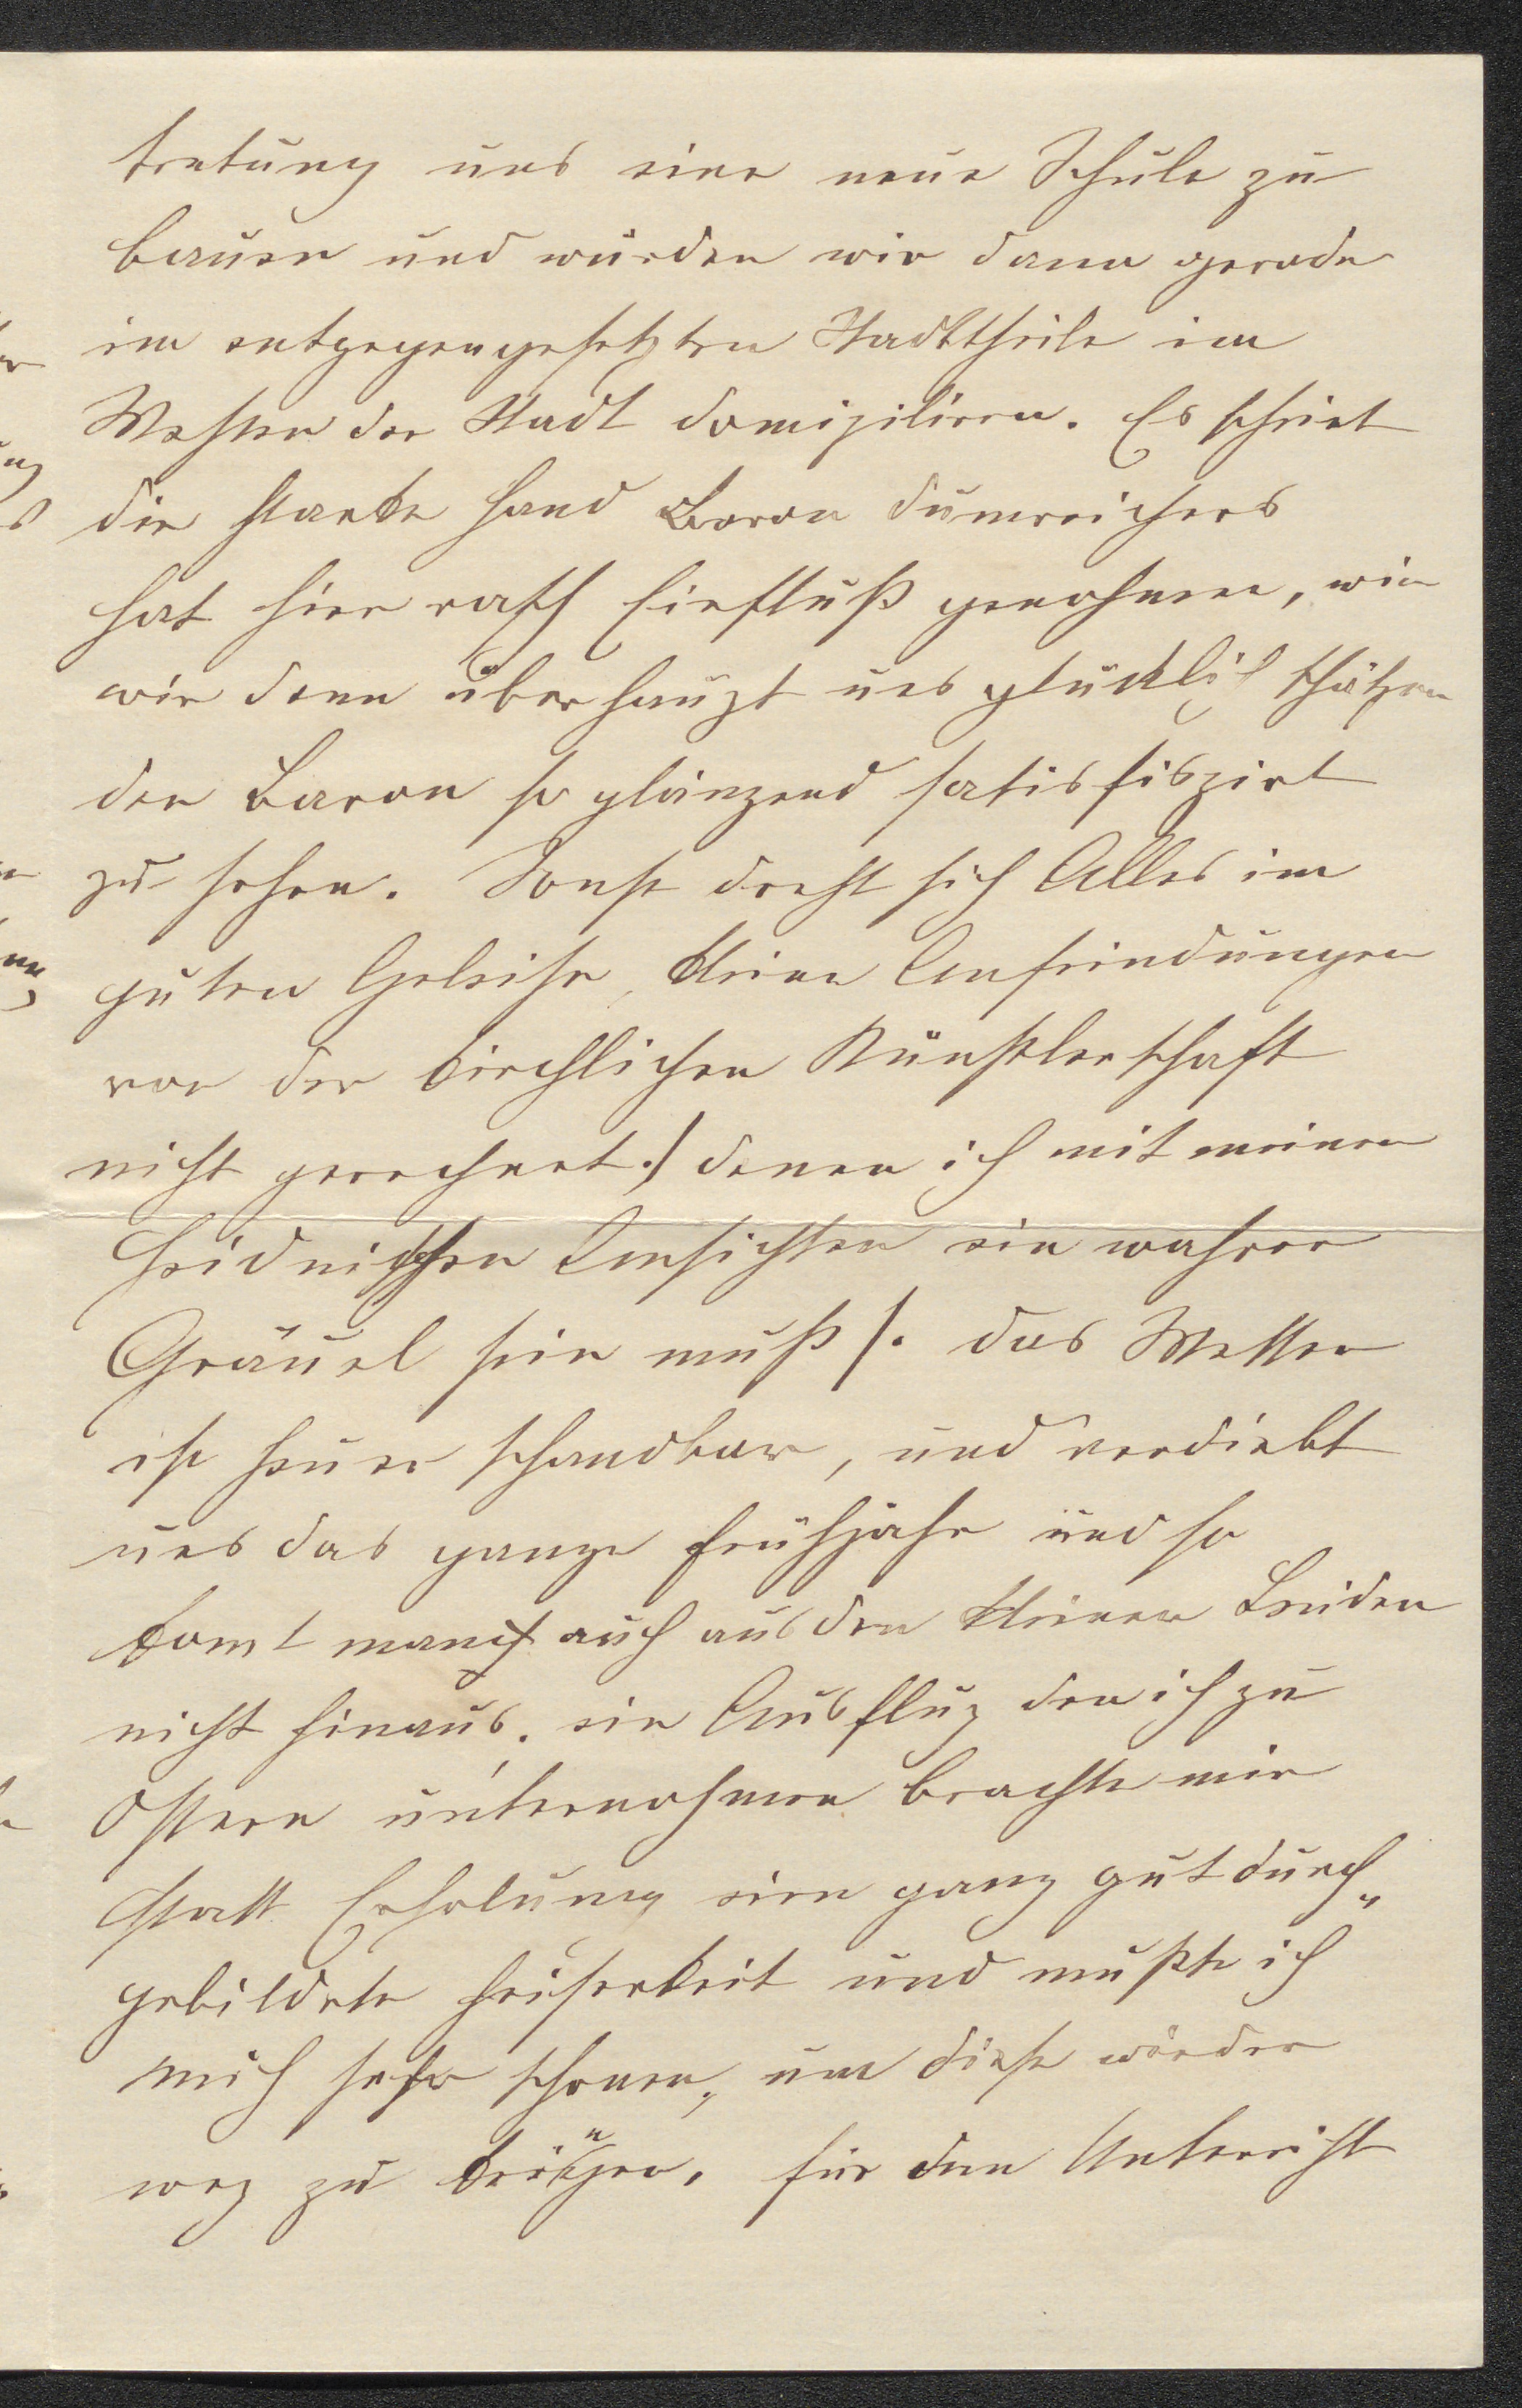 tretung uns eine neue Schule zu
bauen und würden wir dann gerade
im entgegengesetzten Stadttheile im
Westen der Stadt domiziliren. Es scheint
die starke Hand Baron Dumreichers
hat hier rasch Einfluß genohmen, wie
wir denn überhaupt uns glücklich schätzen
den Baron so glänzend satisfiszirt
zu sehen. Sonst dreht sich Alles im
guten Geleise, kleine Anfeindungen
von der kirchlichen Künstlerschaft
nicht gerechnet /denen ich mit meinen
heidnischen Ansichten ein wahrer
Gräuel sein muß/. das Wetter
ist heuer schandbar, und verdirbt
uns das ganze Frühjahr und so
komt man auch aus den kleinen Leiden
nicht hinaus. ein Ausflug den ich zu
Ostern unternohmen brachte mir
statt Erholung eine ganz gut durch„
gebildete Heiserkeit und mußte ich
mich sehr schonen, um diese wieder
weg zu kriegen. für den Unterricht